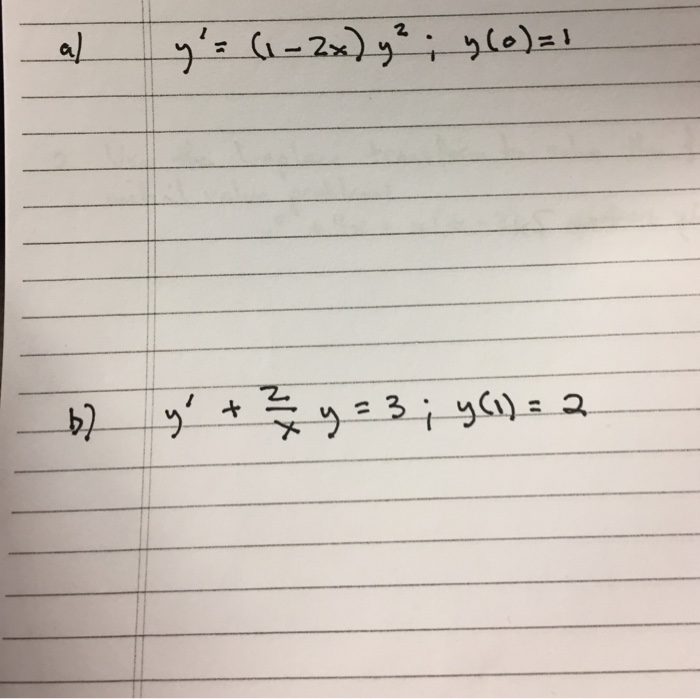 a) y' = (1-2x) y² ; y(0)=1
b) y' + 2/x y = 3 ; y(1) = 2